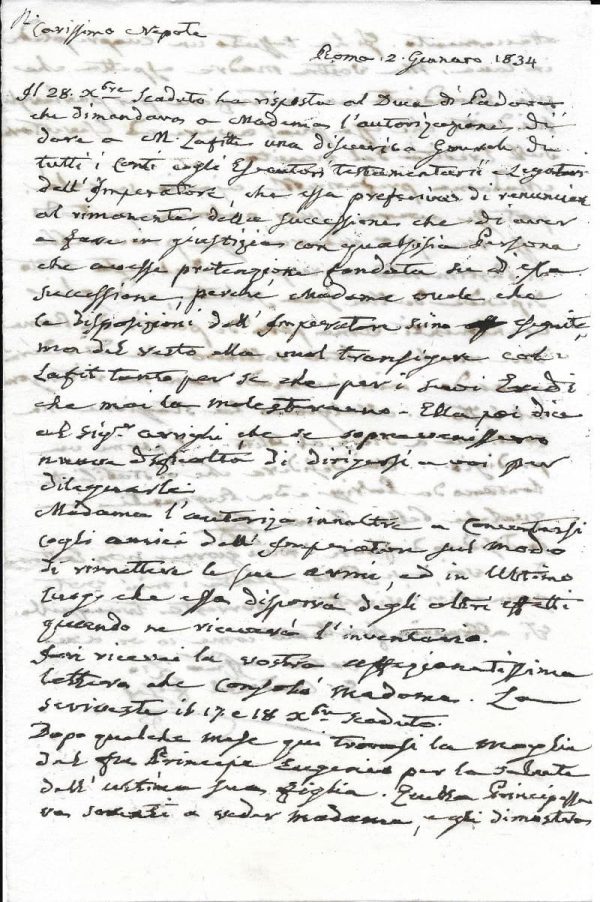 Carissimo Nepote
Roma 2. Gennaro 1834
Il 28. Xbre Scaduto ha risposta al Duca di Padova
che dimandava a Madama l'autorizazione di
dare a M. Lafite una discarica Generale di
tutti i Conti cogli Esecutori testamentarii e Legatari
dell'Imperatore, che essa preferiva di renunciare
al rimanente della successione che di aver
a fare in giustizia con qualsisia Persona
che avesse pretenzione fondata su d'essa
successione, perché Madama vuole che
le disposizioni dell'Imperatore siino eseguite
ma del resto ella vuol transigere col
Lafit tanto per se che per i suoi Eredi
che mai la molesteranno - Ella poi dice
al Sigr. Arrighi che se sopravenissero
nuova dificoltà di dirigersi a voi per
dileguarle.
Madama l'autoriza innoltre a Concertarsi
cogli amici dell'Imperatore sul modo
di rimettere le sue armi, ed in Ultimo
luogo che essa disporrà degli altri effetti
quando ne riceverà l'inventario.
Ieri ricevei la vostra affezionatissima
lettera che Consolò Madama. La
scriveste il 17. e 18 Xbre Scaduto.
Dopo qualche mese qui trovasi la moglie
del fu Principe Eugenio per la salute
dell'ultima sua figlia. Questa Principessa
va sovente a veder Madama, e gli dimostra